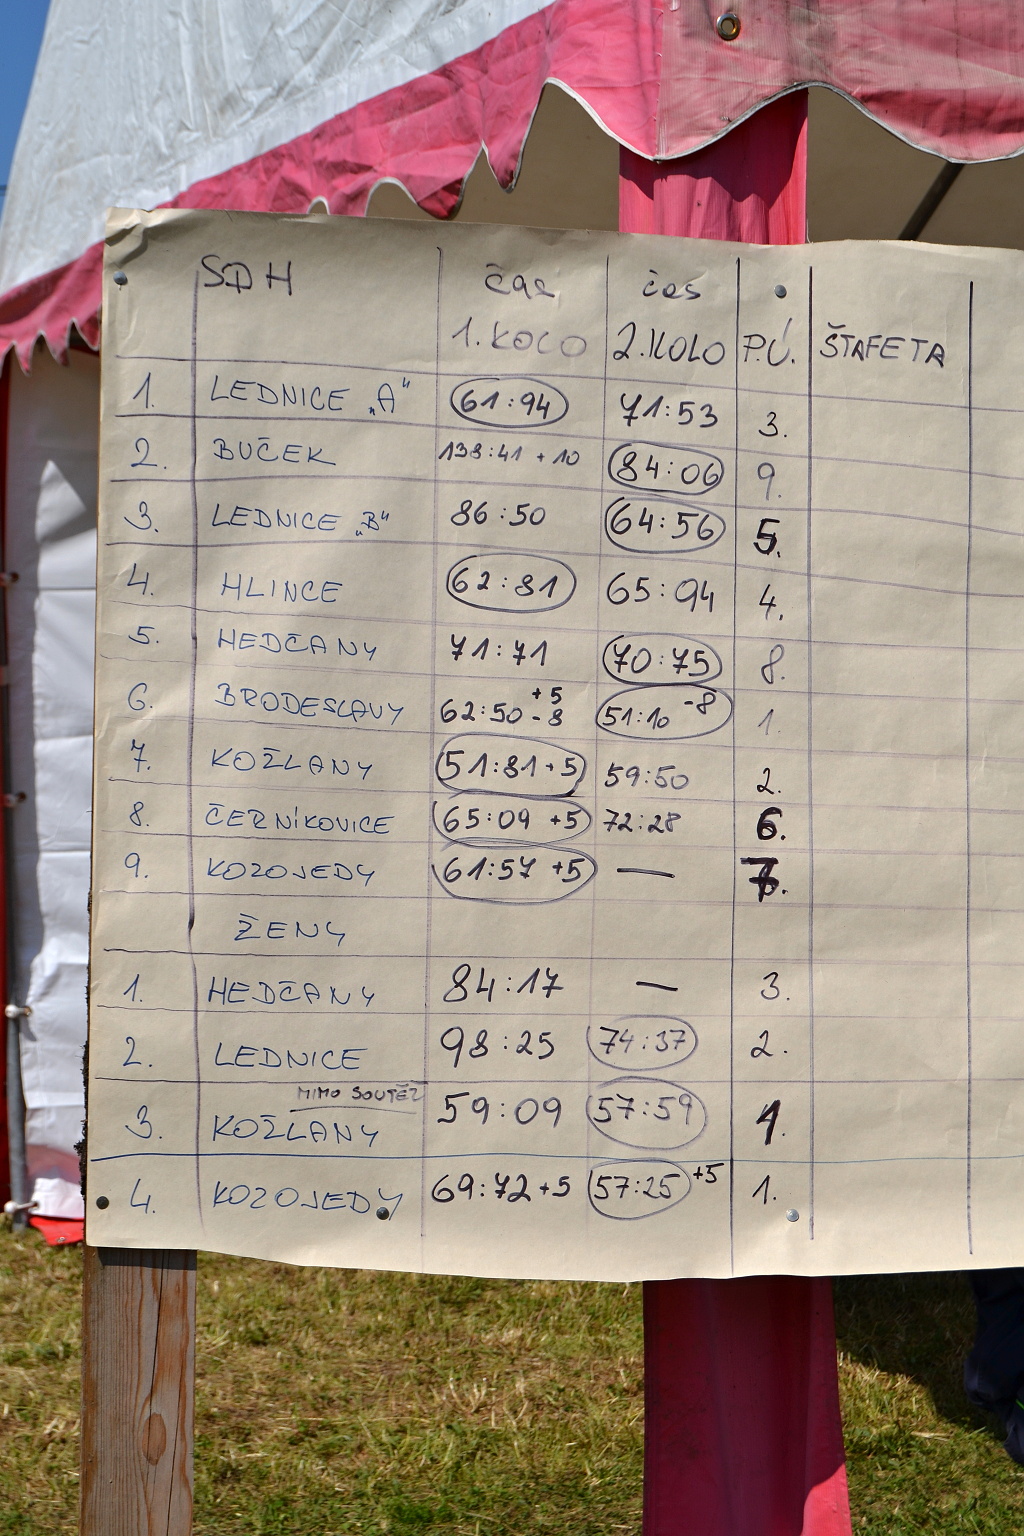 SDH čas čas
1.KOLO 2.KOLO P.Ú. ŠTAFETA
1. LEDNICE „A" 61:94 71:53 3.
2. BUČEK 138:41 +10 84:06 9.
3. LEDNICE „B" 86:50 64:56 5.
4. HLINCE 62:81 65:94 4.
5. HEDČANY 71:71 70:75 8.
6. BRODESLAVY 62:50 +5 -8 51:10 -8 1.
7. KOŽLANY 51:81+5 59:50 2.
8. ČERNÍKOVICE 65:09 +5 72:28 6.
9. KOZOJEDY 61:57 +5 — 7.
ŽENY
1. HEDČANY 84:17 — 3.
2. LEDNICE 98:25 74:37 2.
MIMO SOUTĚŽ
3. KOŽLANY 59:09 57:59 1.
4. KOZOJEDY 69:72+5 57:25 +5 1.